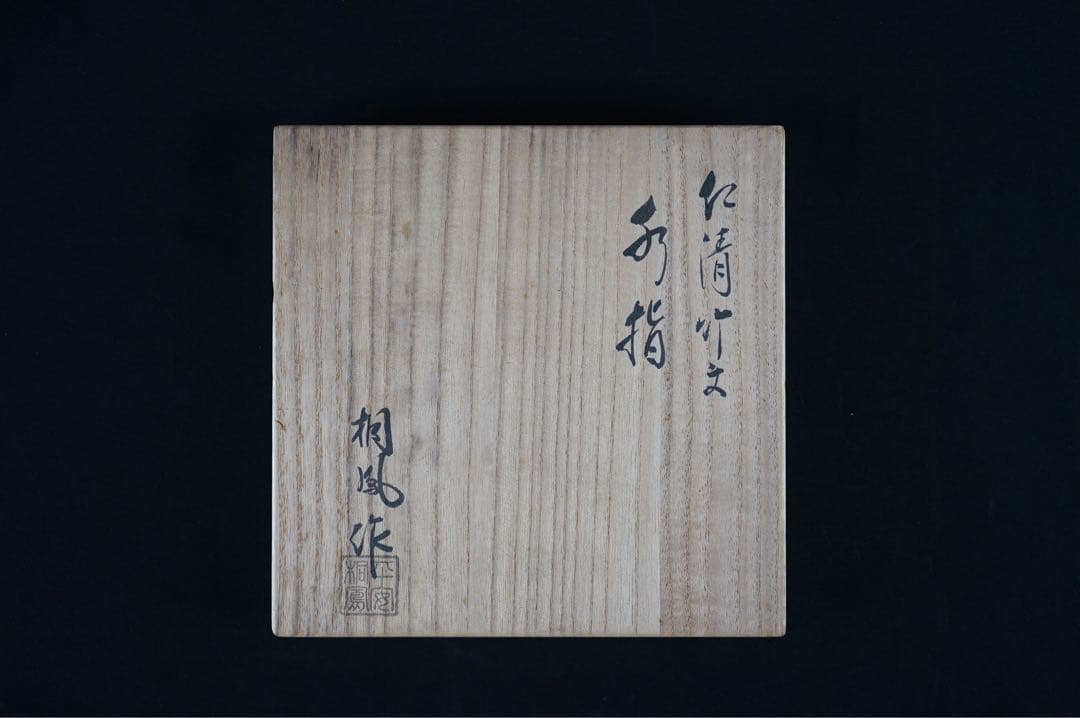 仁清竹文
水指
桐鳳作
平安桐鳳